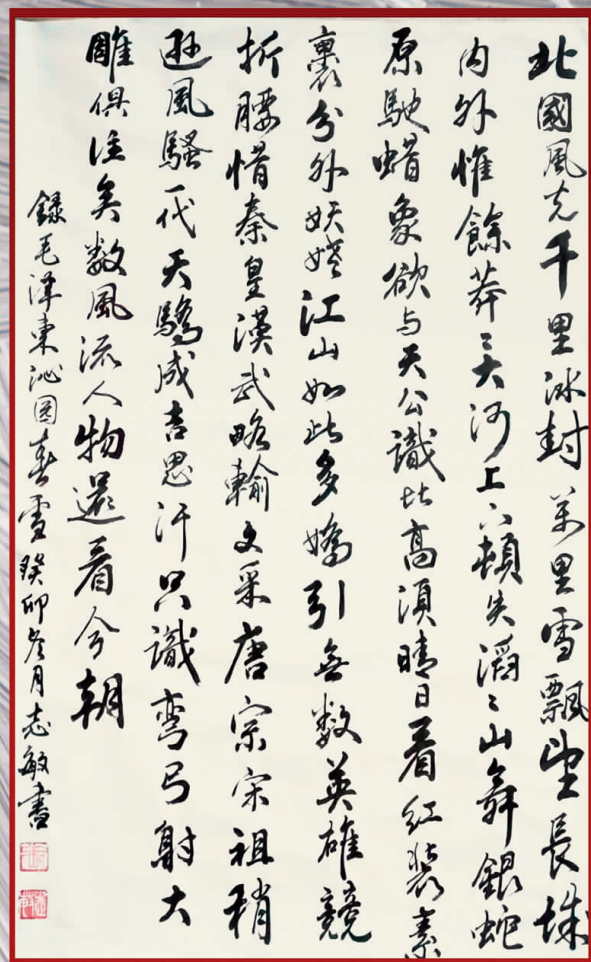 北國風光千里冰封萬里雪飄望長城
内外惟餘莽〻大河上下頓失滔〻山舞銀蛇
原馳蜡象欲与天公識比高須晴日看红裝素
裹分外妖嬈江山如此多嬌引無数英雄競
折腰惜秦皇漢武略輸文采唐宗宋祖稍
遜風騷一代天驕成吉思汗只識弯弓射大
雕俱往矣数風流人物還看今朝
錄毛澤東沁园春雪癸卯冬月志敏書